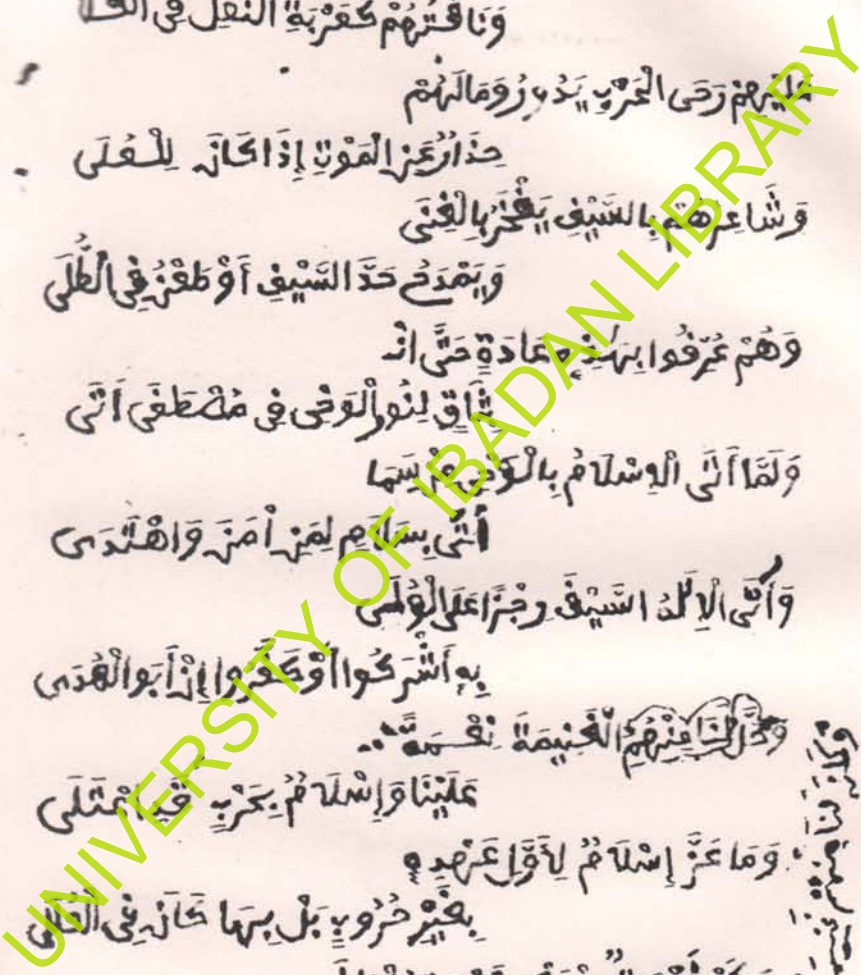 وَنَاقَتُهُمْ كَعَرْبَةِ النَّقْلِ فِي
عَلَيْهِمْ رَحَى الْحَرْبِ يَدُورُ وَمَا لَهُمْ
حِذَارٌ عَنِ الْمَوْتِ إِذَا كَانَ لِلْعُلَى
وَشَاعِرُهُمْ بِالسَّيْفِ يَفْخَرُ بِالْغِنَى
وَيَمْدَحُ حَدَّ السَّيْفِ أَوْ طَعْنٌ فِي الطُّلَى
وَهُمْ عُرِّفُوا بِهَذِهِ عَادَةً حَتَّى انْـ
بِثَاقٍ لِنُورِ الْوَحْيِ فِي مُصْطَفَى أَتَى
وَلَمَّا أَتَى الْإِسْلَامُ بِالْوَحْيِ مِنْ سَمَا
أَتَى بِسَلَامٍ لِمَنْ أَمَنَ وَاهْتَدَى
السَّيْفَ
بِهِ أَشْرَكُوا أَوْ كَفَرُوا إِنْ أَبَوا الْهُدَى
مِنْهُمِ الْغَنِيمَةَ نِعْمَةً
عَلَيْنَا وَإِسْلَامٌ بِحَرْبٍ
وَمَا عَزَّ إِسْلَامٌ لِأَوَّلِ عَهْدِهِ
بِغَيْرِ حُرُوبٍ بَلْ بِهَا كَانَ فِي الْعُلَى
UNIVERSITY OF IBADAN LIBRARY